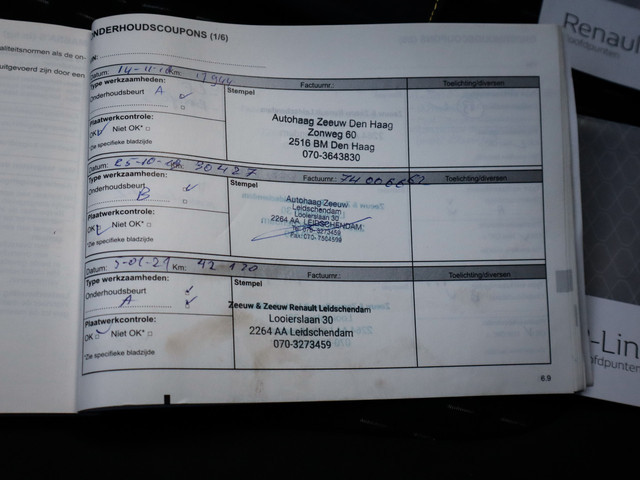 Renault
oofdpunten
ONDERHOUDSCOUPONS (1/6)
aliteitsnormen als de on-
uitgevoerd zijn door een
Datum: 14-11-18 Km: 17944
Factuurnr.:
Toelichting/diversen
Type werkzaamheden:
Onderhoudsbeurt A
Plaatwerkcontrole:
OK Niet OK*
*Zie specifieke bladzijde
Stempel
Autohaag Zeeuw Den Haag
Zonweg 60
2516 BM Den Haag
070-3643830
Datum: 25-10-19 Km: 30427
Factuurnr.:
Toelichting/diversen
Type werkzaamheden:
Onderhoudsbeurt
B
Plaatwerkcontrole:
OK Niet OK*
*Zie specifieke bladzijde
Stempel
Autohaag Zeeuw
Leidschendam
Looierslaan 30
2264 AA LEIDSCHENDAM
Tel: 070-3273459
Datum: 5-01-21 Km: 42 120
Factuurnr.:
Toelichting/diversen
Type werkzaamheden:
Onderhoudsbeurt
A
Plaatwerkcontrole:
OK Niet OK*
*Zie specifieke bladzijde
Stempel
Zeeuw & Zeeuw Renault Leidschendam
Looierslaan 30
2264 AA Leidschendam
070-3273459
-Lin
ofdpunten
6.9